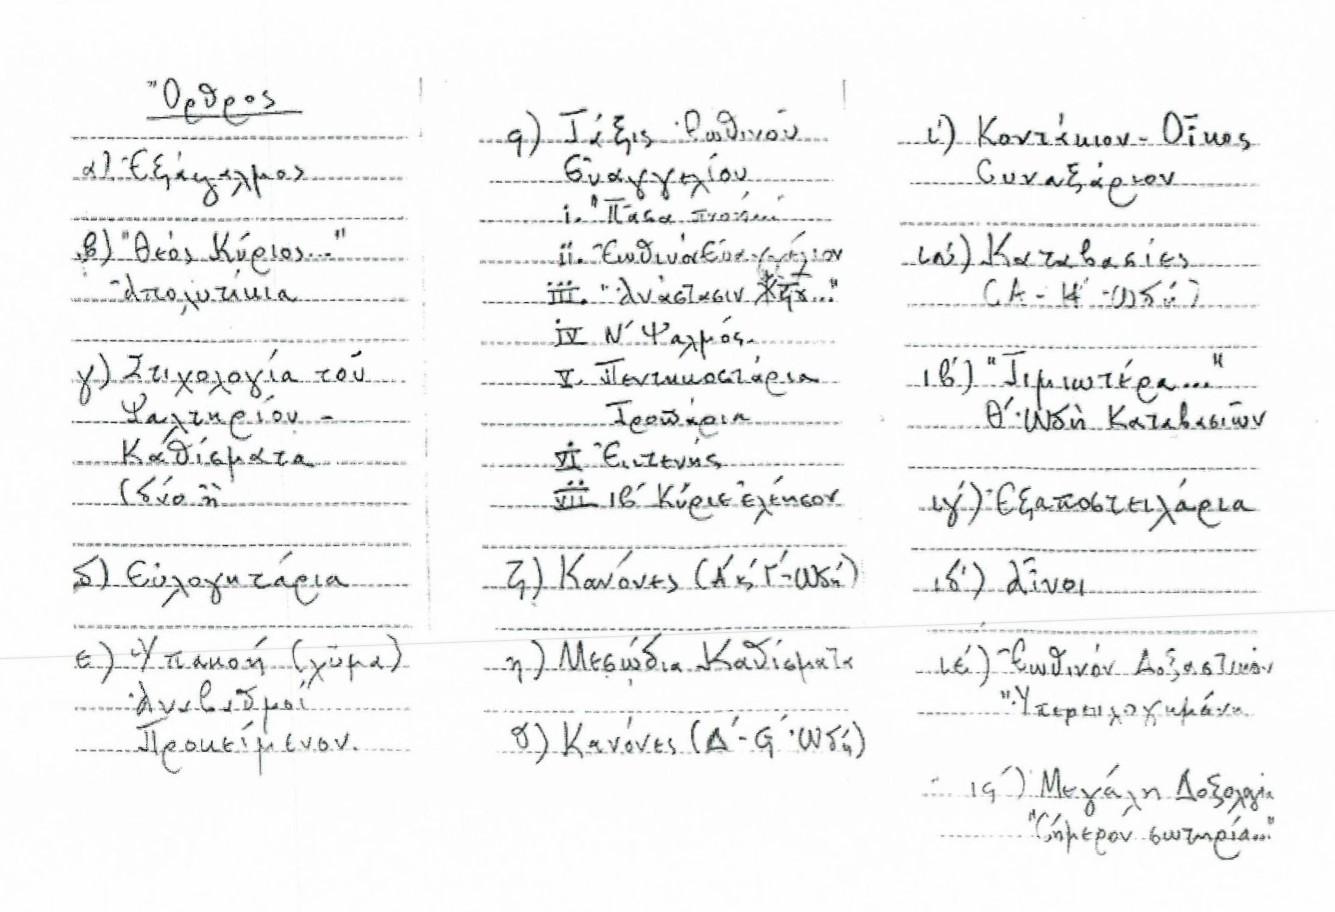 Ὄρθρος
α) Ἑξάψαλμος
β) "Θεός Κύριος..."
Ἀπολυτίκια
γ) Στιχολογία τοῦ
Ψαλτηρίου -
Καθίσματα
(δύο ἢ
δ) Εὐλογητάρια
ε) Ὑπακοή (χῦμα)
Ἀναβαθμοί
Προκείμενον.
ϛ) Τάξις Ἑωθινοῦ
Εὐαγγελίου
i. "Πᾶσα πνοή"
ii. Ἑωθινόν Εὐαγγέλιον
iii. "Ἀνάστασιν Χῦ..."
iv Ν΄ Ψαλμός.
v. Πεντηκοστάρια
Τροπάρια
vi Ἐκτενής
vii ΙΒ΄ Κύριε ἐλέησον
ζ) Κανόνες (Α΄ κ΄ Γ΄ - ᾠδή)
η) Μεσώδια Καθίσματα
θ) Κανόνες (Δ΄ - Ϛ΄ ᾠδή)
ι) Κοντάκιον - Οἶκος
Συναξάριον
ια΄) Καταβασίες
(Α - Η΄ ᾠδή)
ιβ΄) "Τιμιωτέρα..."
Θ΄ ᾠδὴ Καταβασιῶν
ιγ΄) Ἐξαποστειλάρια
ιδ΄) Αἶνοι
ιέ) Ἑωθινόν Δοξαστικόν
"Ὑπερευλογημένη
ιϛ΄) Μεγάλη Δοξολογία
"Σήμερον σωτηρία..."